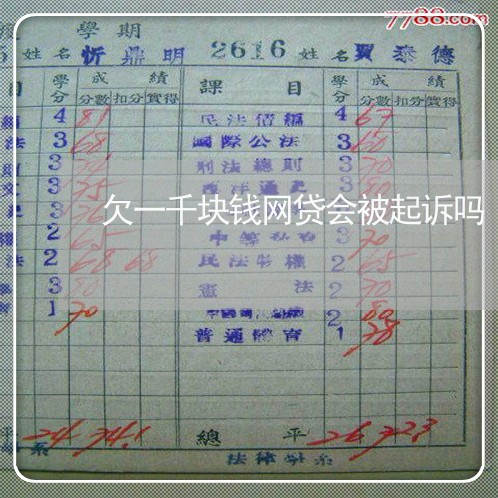 7788.com
學期
姓名 忻鼎明 2616 姓名 賈泰德
目 學分 成績 課目 學分 成績
分數 扣分 實得 分數 扣分 實得
4 81 民法債編 4 67
法 3 68 國際公法 3 60
3 刑法總則 3 70
文 3 75 西洋通史 3 80
欠一千块钱网贷会被起诉吗
2 65 3 70
法 2 68 68 民法物權 2 65
3 80 憲法 2 70
1 70 2 80
普通體育 1 78
平 24 74.1 總平 26 72.3
系 法律學系